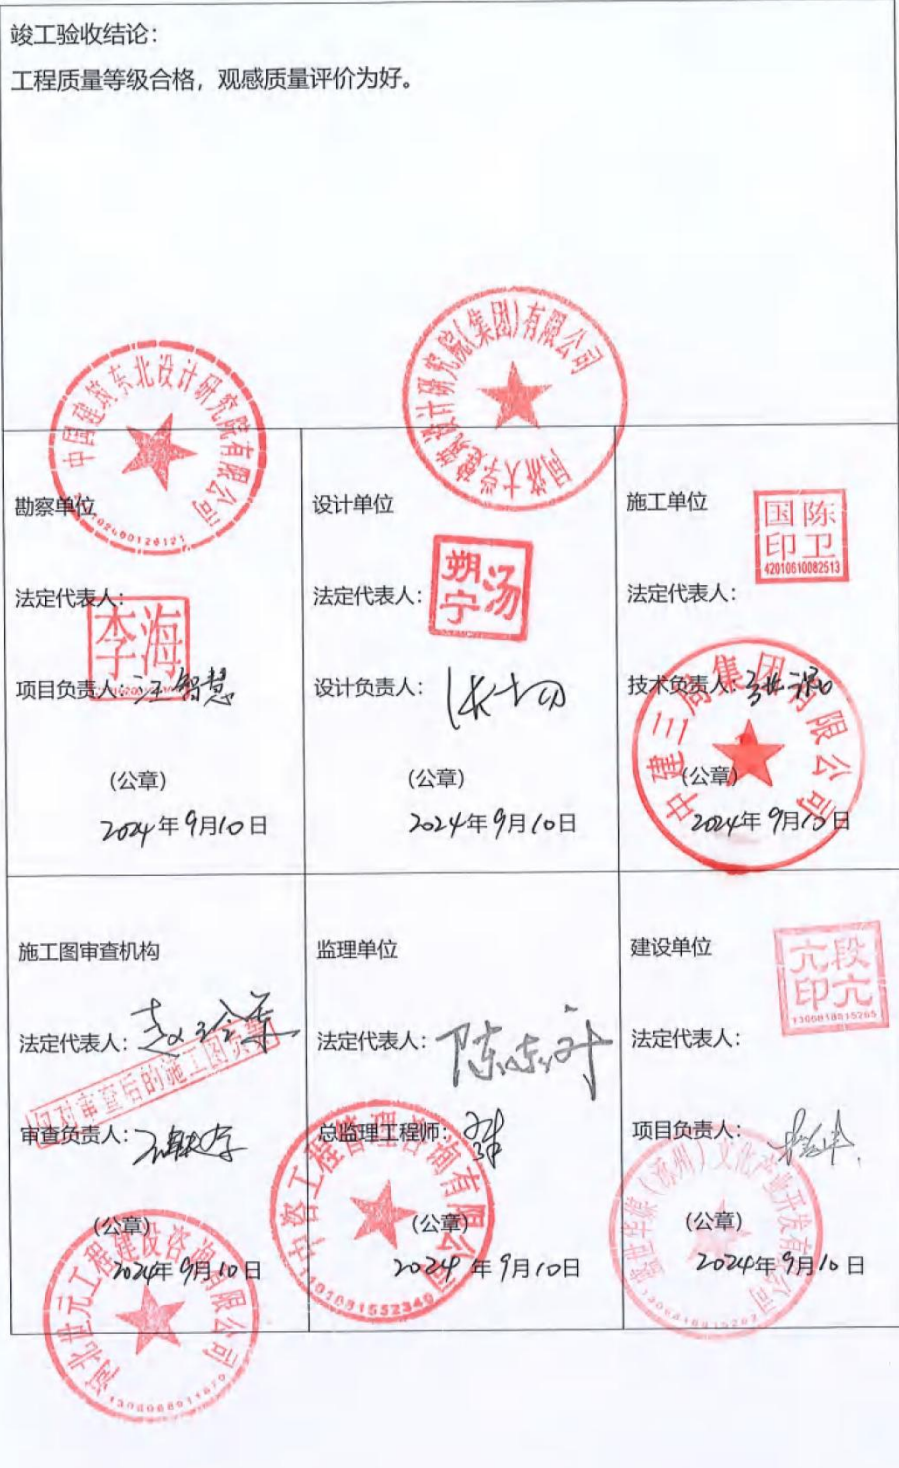 竣工验收结论：
工程质量等级合格，观感质量评价为好。
中国建筑东北设计研究院有限公司
同济大学建筑设计研究院(集团)有限公司
勘察单位
法定代表人：
李海
项目负责人：汪智慧
(公章)
2024年9月10日
设计单位
法定代表人：
汤朔宁
设计负责人：
(公章)
2024年9月10日
施工单位
陈卫国印
42010610082513
法定代表人：
技术负责人：
中建三局集团有限公司
(公章)
2024年9月10日
施工图审查机构
法定代表人：
仅对审查后的施工图负责
审查负责人：
(公章)
2024年9月10日
河北世元工程建设咨询有限公司
监理单位
法定代表人：
总监理工程师：
中咨工程管理咨询有限公司
(公章)
2024年9月10日
建设单位
段亢亢印
法定代表人：
项目负责人：
(公章)
2024年9月10日